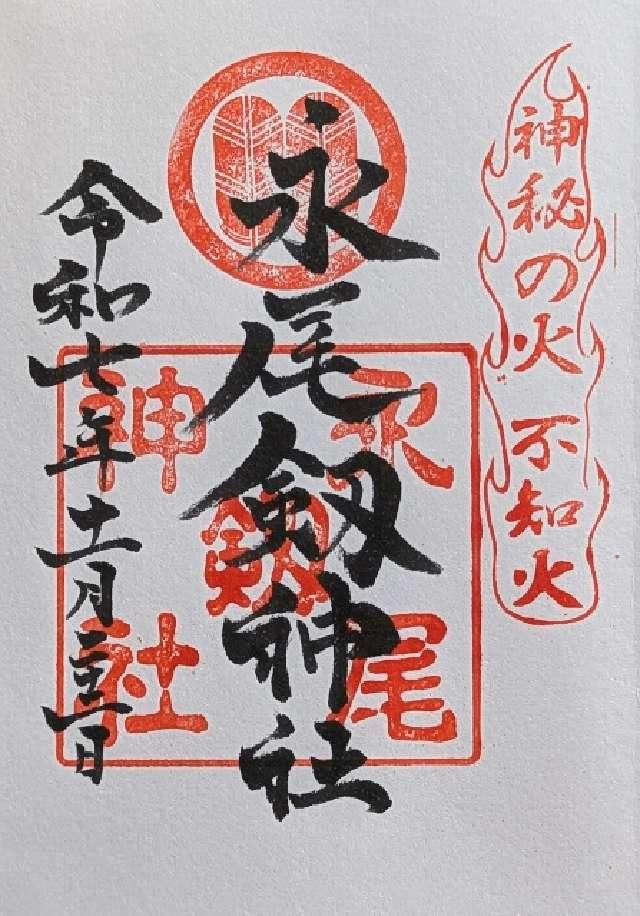 神秘の火 不知火
永尾剱神社
令和七年十一月二十二日
永尾
剱
神社